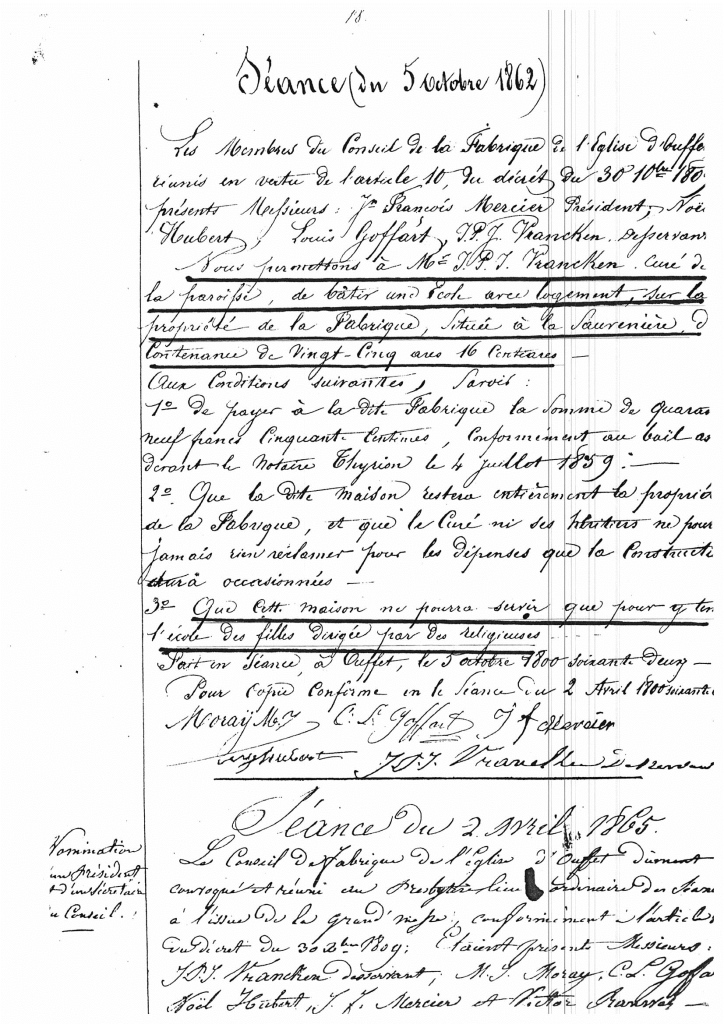 18.
Séance (du 5 octobre 1862)
Les Membres du Conseil de la Fabrique de l'Eglise d'Ouffe
réunis en vertu de l'article 10, du décrét du 30 10bre 180
présents Messieurs: Jn François Mercier Président, Noë
Hubert, Louis Goffart, J.P.J. Vrancken. Desservan
Nous permettons à Mr J.P.J. Vrancken. Curé de
la paroisse, de bâtir une Ecole avec logement, sur la
propriété de la Fabrique, située à la Sauvenière, d
Contenance de Vingt-Cinq ares 16 Centiares —
Aux Conditions suivantes, Savoir:
1º de payer à la dite Fabrique la Somme de quaran
neuf francs Cinquante Centimes, Conformément au bail
devant le Notaire Thyrion le 4 juillot 1859: —
2º Que la dite maison restera entièrement la proprié
de la Fabrique, et que le Curé ni ses héritiers ne pour
jamais rien réclamer pour les dépenses que la Constructi
aura occasionnées —
3º Que Cette maison ne pourra servir que pour y ten
l'école des filles dirigée par des religieuses
Fait en Séance, à Ouffet, le 5 octobre 1800 soixante Deux —
Pour Copie Conforme en le Séance du 2 Avril 1800 soixante
Moray M.J C. L. Goffart J f Mercier
Hubert J.P.J. Vrancken Desservan
Séance du 2 Avril 1865.
Nomination
un Président
et d'un Secrétaire
du Conseil.
Le Conseil de Fabrique de l'Eglise d'Ouffet dûment
convoqué et réuni au Presbytere lieu ordinaire des Séan
à l'issue de la grand'messe, conformément à l'article
du décret du 30 Xbre 1809; Etaient présents Messieurs:
J.P.J. Vrancken desservant, M.J. Moray, C.L. Goffa
Noël Hubert, J. f. Mercier et Victor